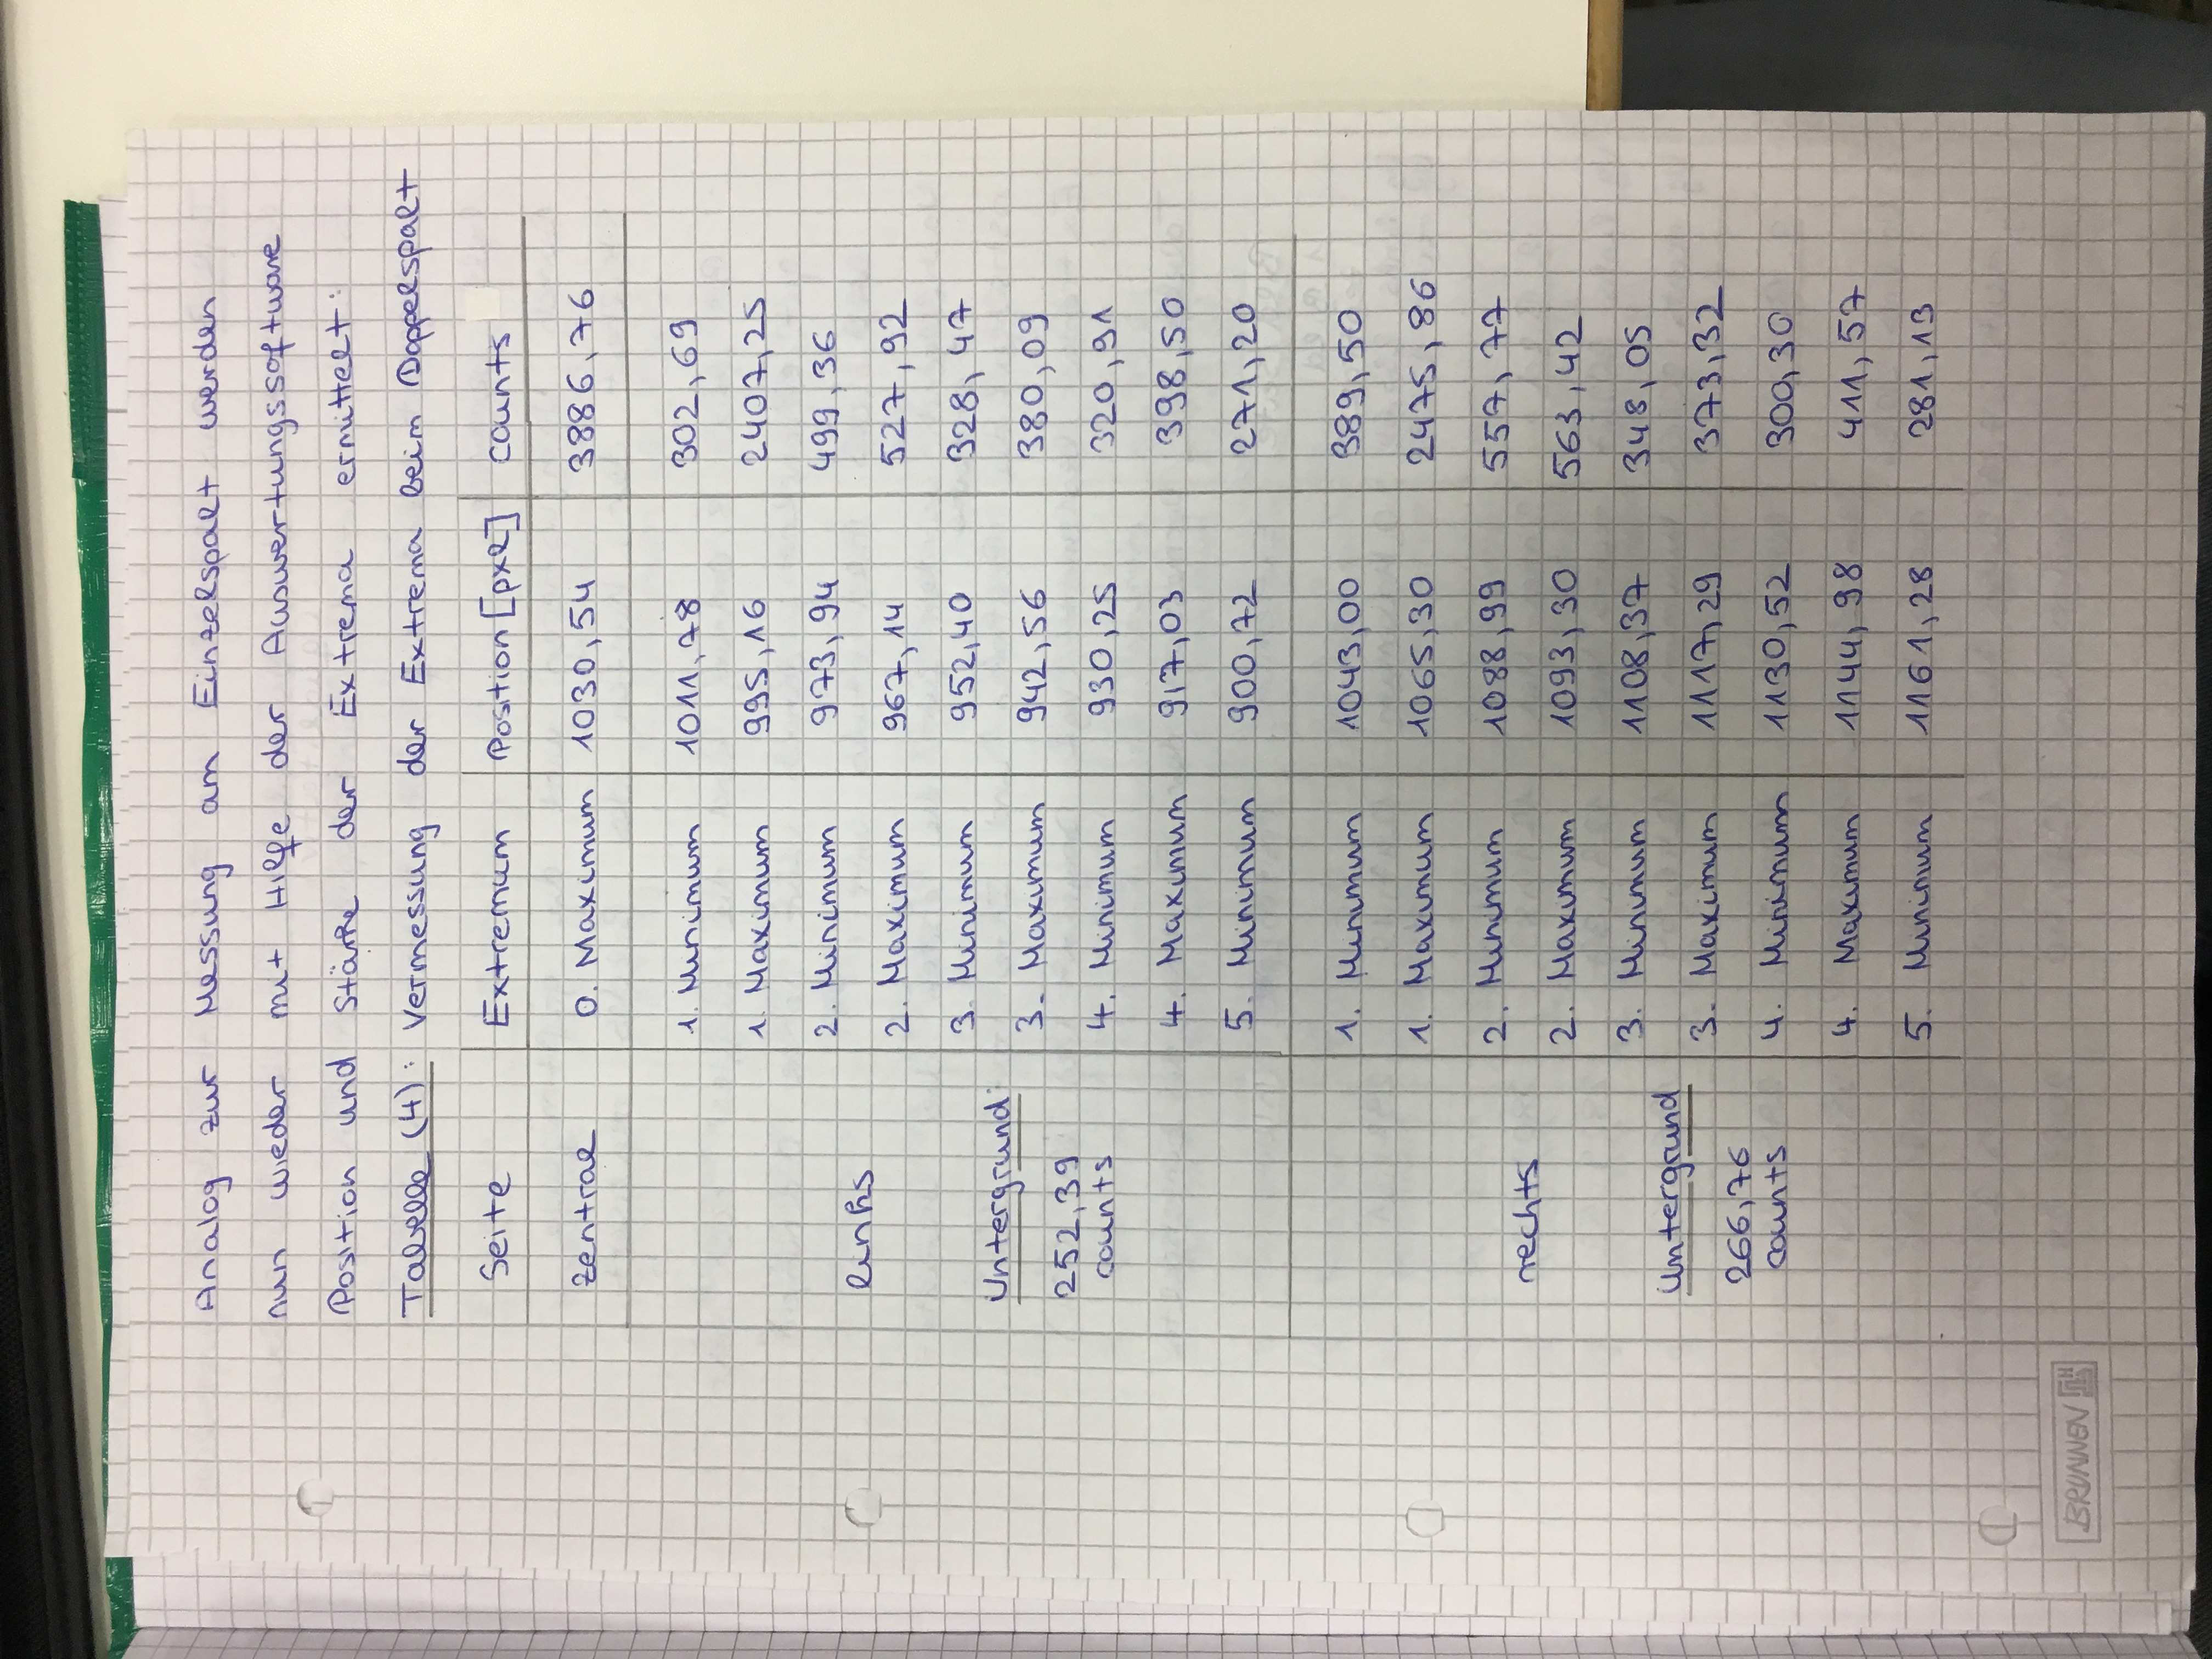 Analog zur Messung am Einzelspalt werden
nun wieder mit Hilfe der Auswertungssoftware
Position und Stärke der Extrema ermittelt:
Tabelle (4): Vermessung der Extrema beim Doppelspalt
Seite Extremum Position [pxl] counts
zentral 0. Maximum 1030,54 3886,76
1. Minimum 1011,78 302,69
1. Maximum 995,16 2407,25
2. Minimum 973,94 499,36
links
2. Maximum 967,14 527,92
3. Minimum 952,40 328,47
Untergrund:
3. Maximum 942,56 380,09
252,39
counts
4. Minimum 930,25 320,91
4. Maximum 917,03 398,50
5. Minimum 900,72 271,20
1. Minimum 1043,00 389,50
1. Maximum 1065,30 2475,86
2. Minimum 1088,99 557,77
rechts
2. Maximum 1093,30 563,42
3. Minimum 1108,37 348,05
Untergrund
3. Maximum 1117,29 373,32
266,76
counts
4. Minimum 1130,52 300,30
4. Maximum 1144,98 411,57
5. Minimum 1161,28 281,13
BRUNNEN